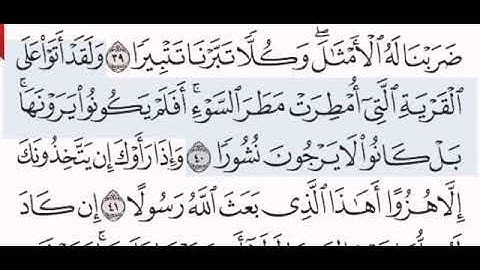 ضَرَبْنَا لَهُ ٱلْأَمْثَٰلَ ۖ وَكُلًّا تَبَّرْنَا تَتْبِيرًا ٣٩ وَلَقَدْ أَتَوْا۟ عَلَى
ٱلْقَرْيَةِ ٱلَّتِىٓ أُمْطِرَتْ مَطَرَ ٱلسَّوْءِ ۚ أَفَلَمْ يَكُونُوا۟ يَرَوْنَهَا ۚ
بَلْ كَانُوا۟ لَا يَرْجُونَ نُشُورًا ٤٠ وَإِذَا رَأَوْكَ إِن يَتَّخِذُونَكَ
إِلَّا هُزُوًا أَهَٰذَا ٱلَّذِى بَعَثَ ٱللَّهُ رَسُولًا ٤١ إِن كَادَ